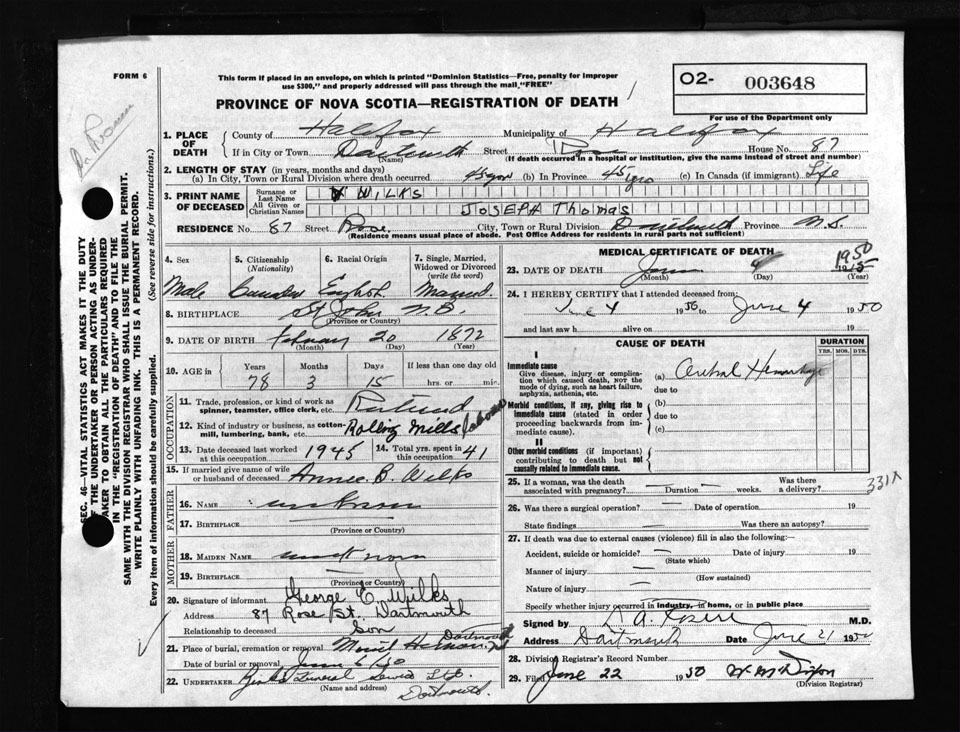 FORM 6
This form if placed in an envelope, on which is printed "Dominion Statistics—Free, penalty for improper
use $300," and properly addressed will pass through the mail "FREE"
O2- 003648
For use of the Department only
PROVINCE OF NOVA SCOTIA—REGISTRATION OF DEATH
1. PLACE OF DEATH
County of Halifax Municipality of Halifax
If in City or Town Dartmouth Street Rose House No. 87
(Name) (If death occurred in a hospital or institution, give the name instead of street and number)
2. LENGTH OF STAY (in years, months and days)
(a) In City, Town or Rural Division where death occurred 45 yrs (b) In Province 45 yrs (c) In Canada (if immigrant) Life
3. PRINT NAME OF DECEASED
Surname or Last Name WILKS
All Given or Christian Names JOSEPH Thomas
RESIDENCE No. 87 Street Rose City, Town or Rural Division Dartmouth Province N.S.
(Residence means usual place of abode. Post Office Address for residents in rural parts not sufficient)
4. Sex
Male
5. Citizenship (Nationality)
6. Racial Origin
English
7. Single, Married, Widowed or Divorced (write the word)
Married
8. BIRTHPLACE St John N.B.
(Province or Country)
9. DATE OF BIRTH 20 1872
(Month) (Day) (Year)
10. AGE in
Years Months Days If less than one day old
78 3 15 hrs. or min.
OCCUPATION
11. Trade, profession, or kind of work as
spinner, teamster, office clerk, etc. Retired
12. Kind of industry or business, as cotton-
mill, lumbering, bank, etc. Rolling Mills
13. Date deceased last worked at this occupation 1945
14. Total yrs. spent in this occupation 41
15. If married give name of wife
or husband of deceased Annie B. Wilks
FATHER
16. NAME unknown
17. BIRTHPLACE
(Province or Country)
MOTHER
18. MAIDEN NAME unknown
19. BIRTHPLACE
(Province or Country)
20. Signature of informant George E. Wilks
Address 87 Rose St. Dartmouth
Relationship to deceased Son
21. Place of burial, cremation or removal Dartmouth
Date of burial or removal June 6
22. UNDERTAKER Funeral Service Ltd.
(Name and address) Dartmouth
MEDICAL CERTIFICATE OF DEATH
23. DATE OF DEATH 4 1950
(Month) (Day) (Year)
24. I HEREBY CERTIFY that I attended deceased from:
June 4 1950 to June 4 1950
and last saw h alive on 19
CAUSE OF DEATH
DURATION
YRS. MOS. DYS.
I
Immediate cause
Give disease, injury or complica-
tion which caused death, NOT the
mode of dying, such as heart failure,
asphyxia, asthenia, etc.
(a) Hemorrhage
due to
Morbid conditions, if any, giving rise to
immediate cause (stated in order
proceeding backwards from im-
mediate cause).
(b)
due to
(c)
II
Other morbid conditions (if important)
contributing to death but not
causally related to immediate cause.
25. If a woman, was the death associated with pregnancy? Duration weeks. Was there a delivery?
331X
26. Was there a surgical operation? Date of operation 19
State findings Was there an autopsy?
27. If death was due to external causes (violence) fill in also the following:—
Accident, suicide or homicide? Date of injury 19
(State which)
Manner of injury
(How sustained)
Nature of injury
Specify whether injury occurred in industry, in home, or in public place
Signed by M.D.
Address Dartmouth Date June 21 1950
28. Division Registrar's Record Number
29. Filed June 22 1950
(Division Registrar)
SEC. 46—VITAL STATISTICS ACT MAKES IT THE DUTY
OF THE UNDERTAKER OR PERSON ACTING AS UNDER-
TAKER TO OBTAIN ALL THE PARTICULARS REQUIRED
IN THE "REGISTRATION OF DEATH" AND TO FILE THE
SAME WITH THE DIVISION REGISTRAR WHO SHALL ISSUE THE BURIAL PERMIT.
WRITE PLAINLY WITH UNFADING INK. THIS IS A PERMANENT RECORD.
Every item of information should be carefully supplied. (See reverse side for instructions.)